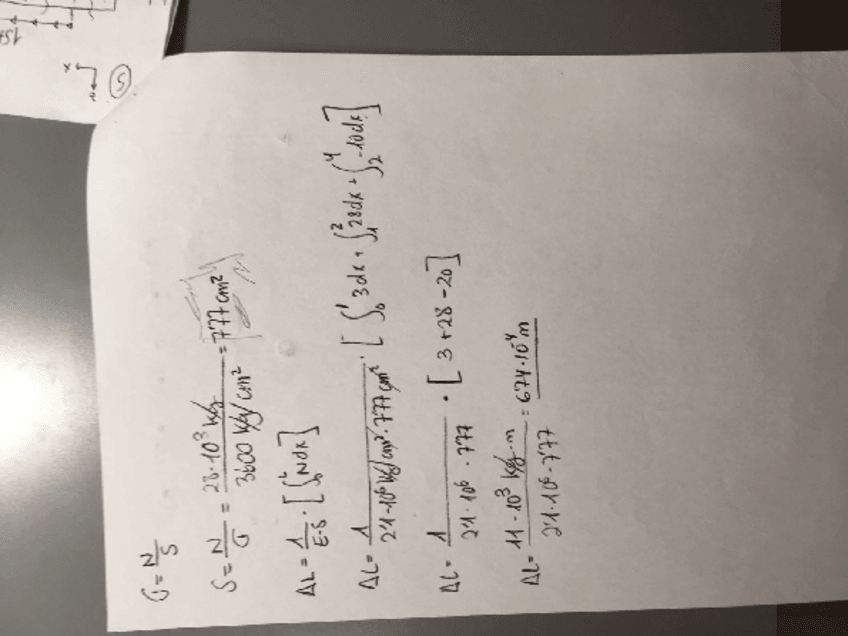 σ = N/S
S = N/σ = 28·10³ Kg / 3600 Kg/cm² = 7'77 cm²
ΔL = 1/(E·S) · [∫₀ᴸ N dx]
ΔL = 1/(2'1·10⁶ Kg/cm² · 7'77 cm²) · [∫₀¹ 3dx + ∫₁² 28dx + ∫₂⁴ -10dx]
ΔL = 1/(2'1·10⁶ · 7'77) · [3 + 28 - 20]
ΔL = 11·10³ Kg·m/(2'1·10⁶ · 7'77) = 6'74·10⁻⁴ m
5
x